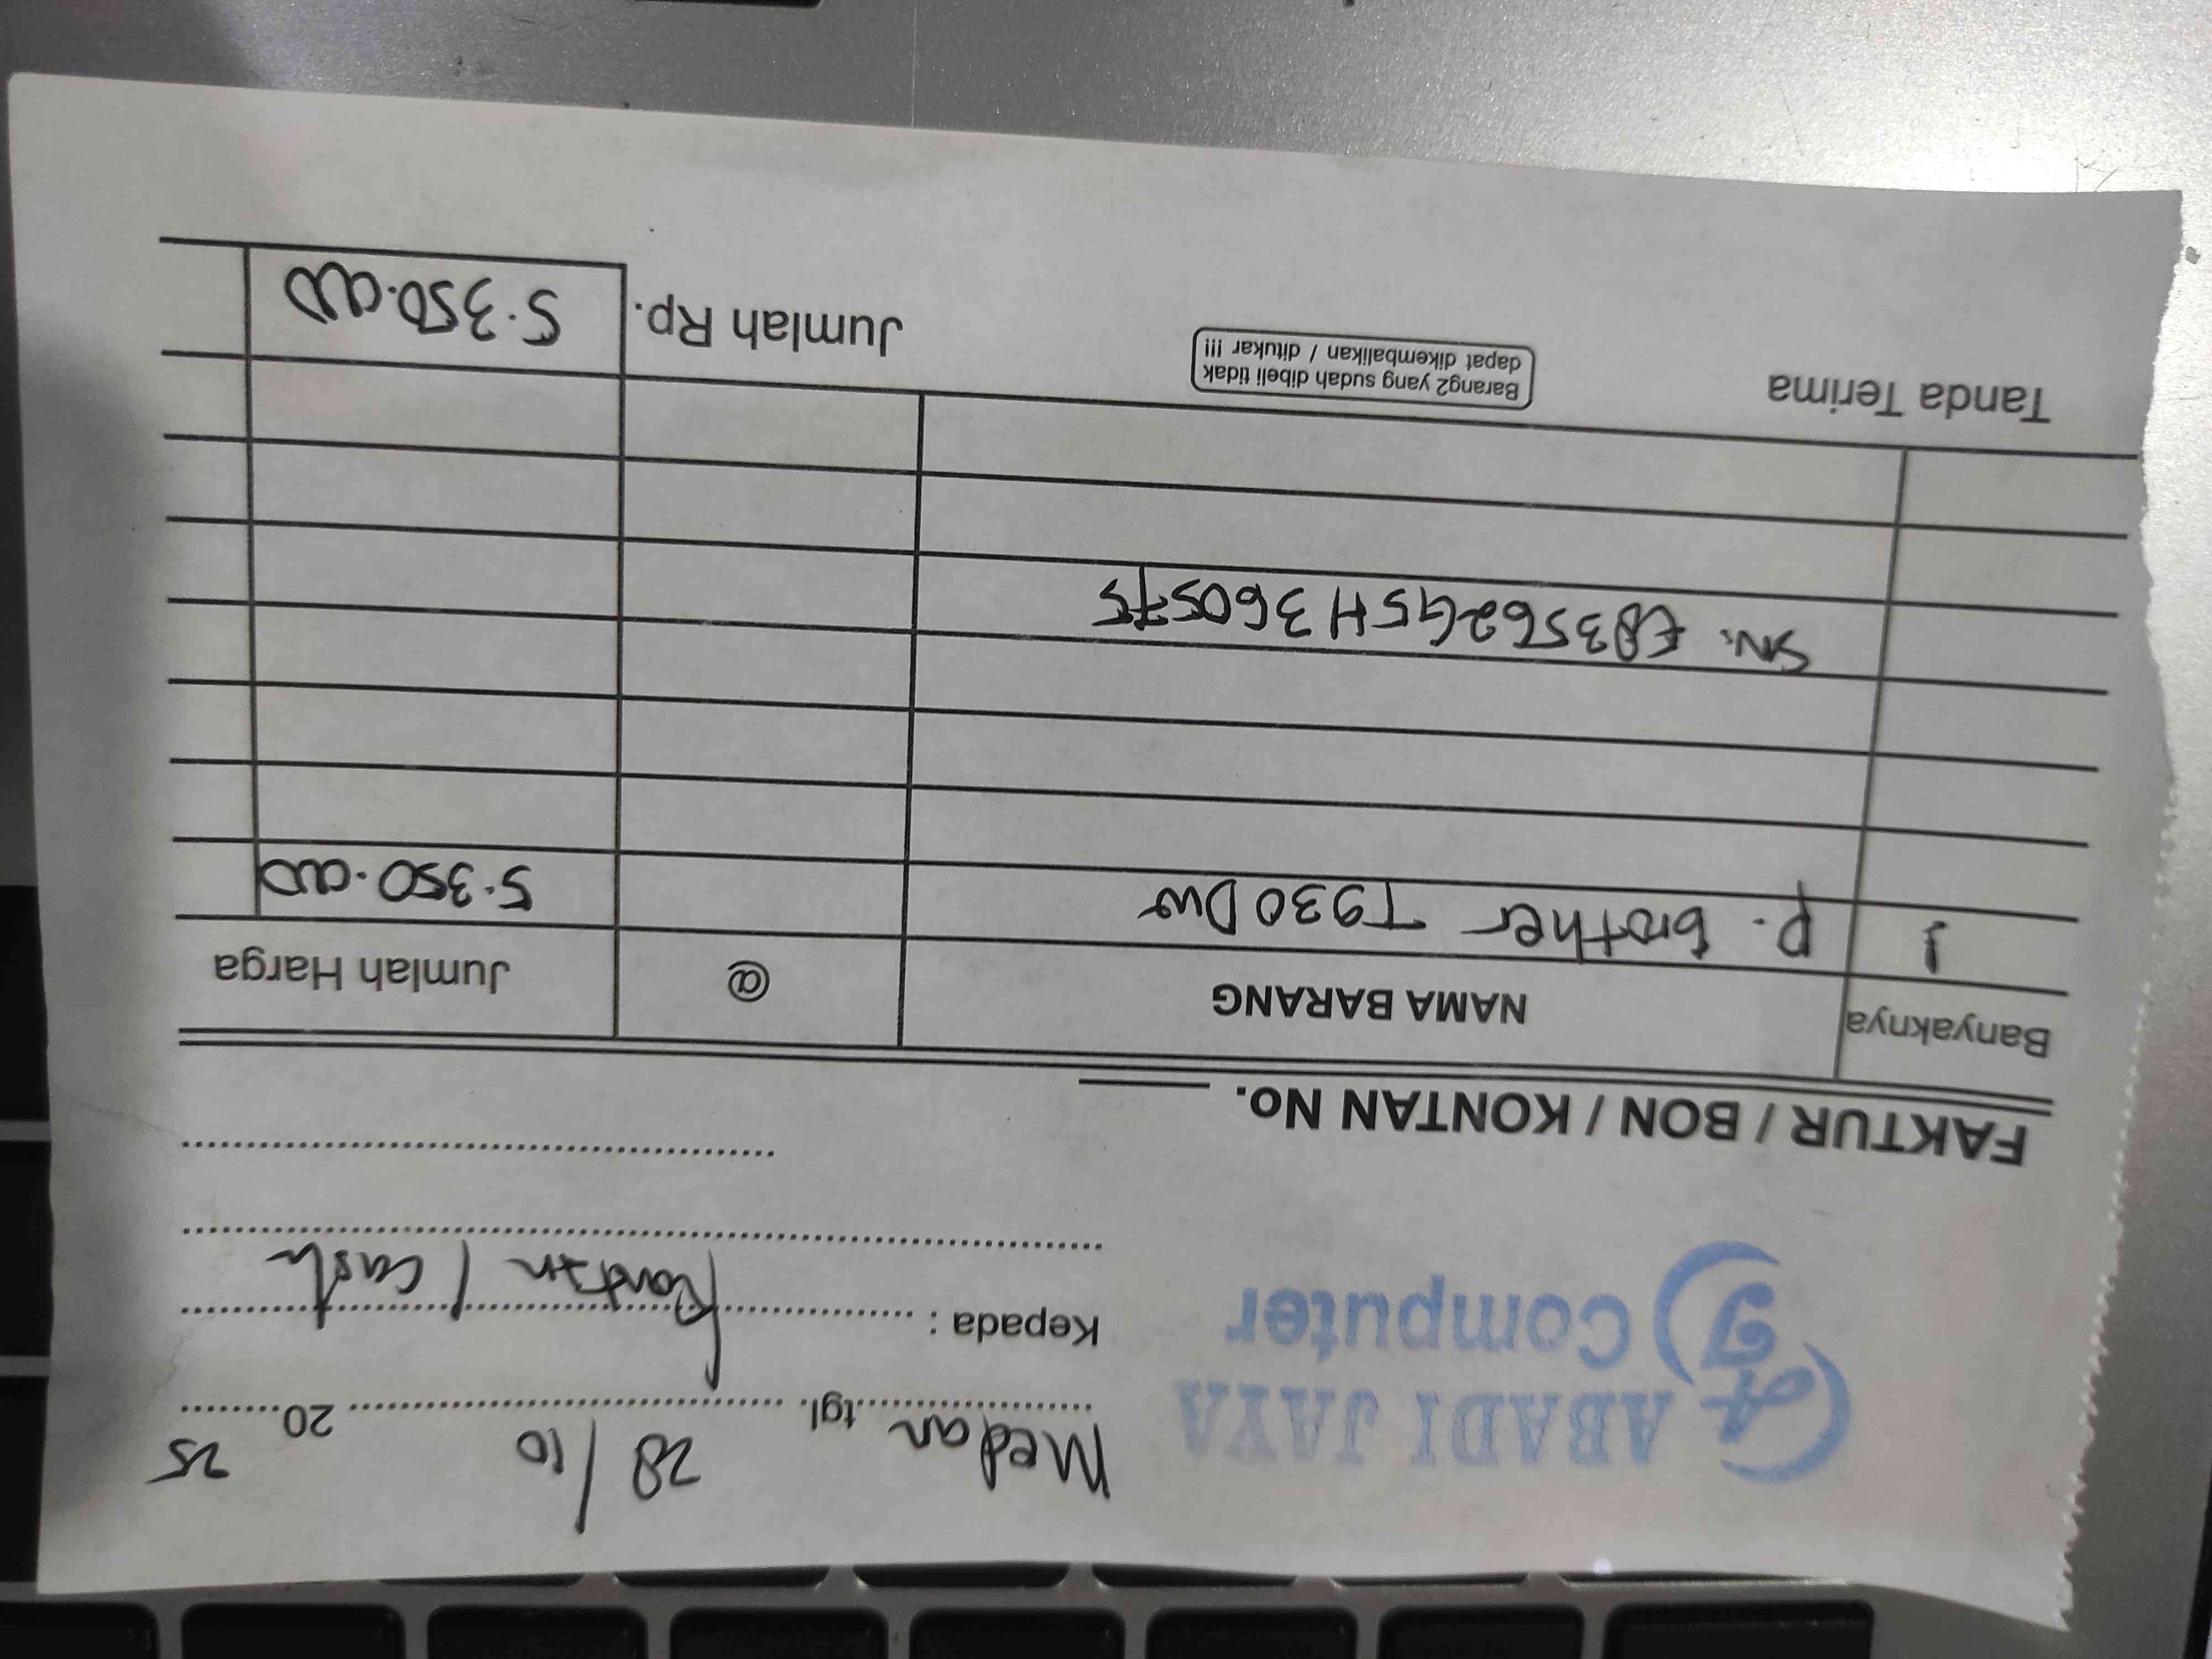 ABADI JAYA
AJ Computer
Medan tgl. 28/10 20 25
Kepada : Kontan / Cash
FAKTUR / BON / KONTAN No.
Banyaknya NAMA BARANG @ Jumlah Harga
1 P. Brother T930 DW 5.350.000
SN. E83562G5H360575
Tanda Terima
Barang2 yang sudah dibeli tidak
dapat dikembalikan / ditukar !!!
Jumlah Rp. 5.350.000